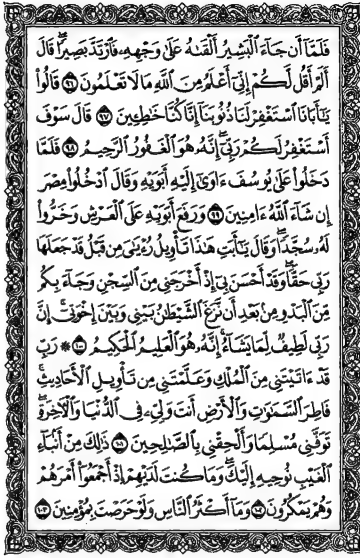 فَلَمَّآ أَن جَآءَ ٱلْبَشِيرُ أَلْقَىٰهُ عَلَىٰ وَجْهِهِۦ فَٱرْتَدَّ بَصِيرًا ۖ قَالَ
أَلَمْ أَقُل لَّكُمْ إِنِّىٓ أَعْلَمُ مِنَ ٱللَّهِ مَا لَا تَعْلَمُونَ ۝٩٦ قَالُوا۟
يَـٰٓأَبَانَا ٱسْتَغْفِرْ لَنَا ذُنُوبَنَآ إِنَّا كُنَّا خَـٰطِـِٔينَ ۝٩٧ قَالَ سَوْفَ
أَسْتَغْفِرُ لَكُمْ رَبِّىٓ ۖ إِنَّهُۥ هُوَ ٱلْغَفُورُ ٱلرَّحِيمُ ۝٩٨ فَلَمَّا
دَخَلُوا۟ عَلَىٰ يُوسُفَ ءَاوَىٰٓ إِلَيْهِ أَبَوَيْهِ وَقَالَ ٱدْخُلُوا۟ مِصْرَ
إِن شَآءَ ٱللَّهُ ءَامِنِينَ ۝٩٩ وَرَفَعَ أَبَوَيْهِ عَلَى ٱلْعَرْشِ وَخَرُّوا۟
لَهُۥ سُجَّدًا ۖ وَقَالَ يَـٰٓأَبَتِ هَـٰذَا تَأْوِيلُ رُءْيَـٰىَ مِن قَبْلُ قَدْ جَعَلَهَا
رَبِّى حَقًّا ۖ وَقَدْ أَحْسَنَ بِىٓ إِذْ أَخْرَجَنِى مِنَ ٱلسِّجْنِ وَجَآءَ بِكُم
مِّنَ ٱلْبَدْوِ مِنۢ بَعْدِ أَن نَّزَغَ ٱلشَّيْطَـٰنُ بَيْنِى وَبَيْنَ إِخْوَتِىٓ ۚ إِنَّ
رَبِّى لَطِيفٌ لِّمَا يَشَآءُ ۚ إِنَّهُۥ هُوَ ٱلْعَلِيمُ ٱلْحَكِيمُ ۝١٠٠ ۞ رَبِّ
قَدْ ءَاتَيْتَنِى مِنَ ٱلْمُلْكِ وَعَلَّمْتَنِى مِن تَأْوِيلِ ٱلْأَحَادِيثِ ۚ
فَاطِرَ ٱلسَّمَـٰوَٰتِ وَٱلْأَرْضِ أَنتَ وَلِىِّۦ فِى ٱلدُّنْيَا وَٱلْـَٔاخِرَةِ ۖ
تَوَفَّنِى مُسْلِمًا وَأَلْحِقْنِى بِٱلصَّـٰلِحِينَ ۝١٠١ ذَٰلِكَ مِنْ أَنۢبَآءِ
ٱلْغَيْبِ نُوحِيهِ إِلَيْكَ ۖ وَمَا كُنتَ لَدَيْهِمْ إِذْ أَجْمَعُوٓا۟ أَمْرَهُمْ
وَهُمْ يَمْكُرُونَ ۝١٠٢ وَمَآ أَكْثَرُ ٱلنَّاسِ وَلَوْ حَرَصْتَ بِمُؤْمِنِينَ ۝١٠٣